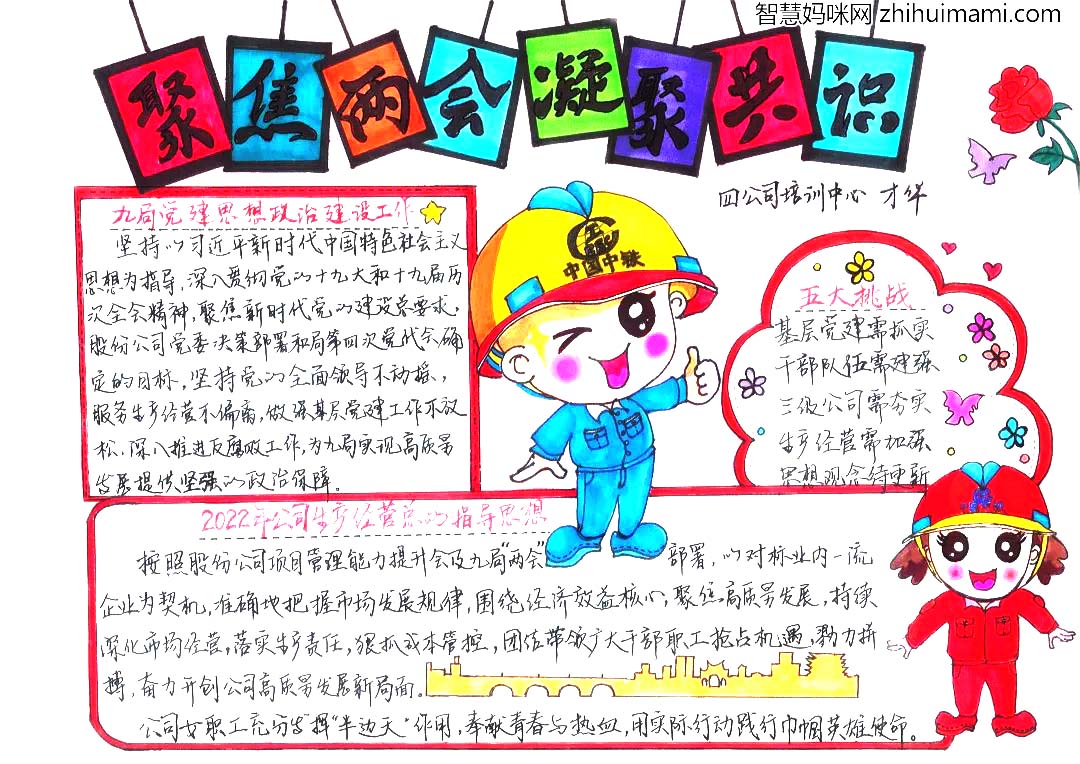 智慧妈咪网 zhihuimami.com
聚焦两会凝聚共识
四公司培训中心 才华
九局党建思想政治建设工作
坚持以习近平新时代中国特色社会主义
思想为指导，深入贯彻党的十九大和十九届历
次全会精神，聚焦新时代党的建设总要求，
股份公司党委决策部署和局第四次党代会确
定的目标，坚持党的全面领导不动摇，
服务生产经营不偏离，做强基层党建工作不放
松，深入推进反腐败工作，为九局实现高质量
发展提供坚强的政治保障。
中国中铁
五大挑战
基层党建需抓实
干部队伍需建强
三级公司需夯实
生产经营需加强
思想观念待更新
2022年公司生产经营总的指导思想
按照股份公司项目管理能力提升会及九局"两会"部署，以对标业内一流
企业为契机，准确地把握市场发展规律，围绕经济效益核心，聚焦高质量发展，持续
深化市场经营，落实生产责任，狠抓成本管控，团结带领广大干部职工抢占机遇，勠力拼
搏，奋力开创公司高质量发展新局面。
公司女职工充分发挥"半边天"作用，奉献青春与热血，用实际行动践行巾帼英雄使命。